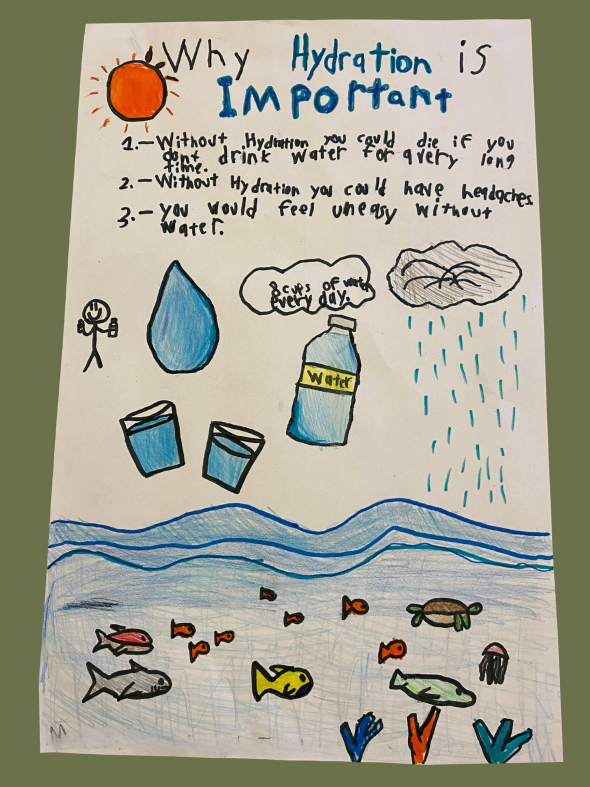 Why Hydration is
Important
1.- Without Hydration you could die if you
dont drink water for a very long
time.
2.- Without Hydration you could have headaches
3.- you would feel uneasy without
water.
8 cups of water
every day.
Water
M